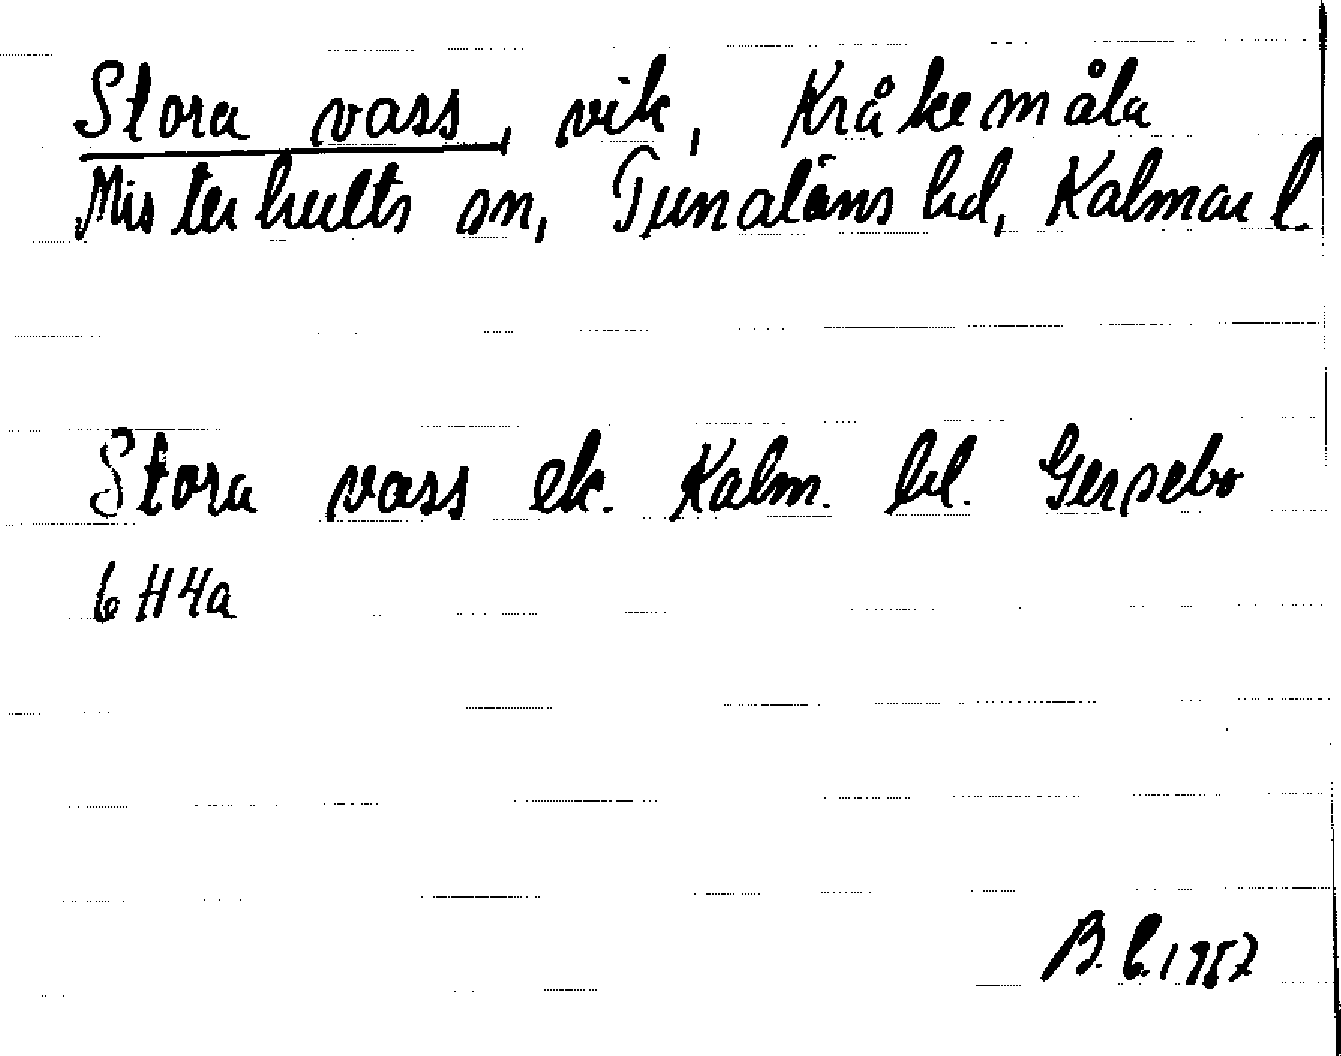 Stora vass, vik, Kråkemåla
Misterhults sn, Tunaläns hd, Kalmar l.
Stora vass ek. Kalm. bl. Gersebo
6H4a
B.L. 1957